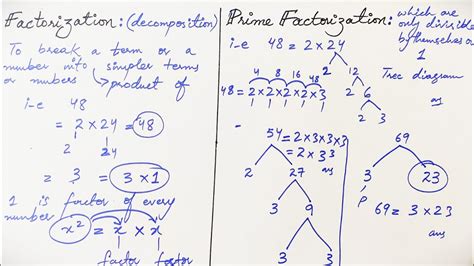 Factorization: (decomposition)
To break a term or a
number into simpler terms
or numbers product of
i-e 48
= 2 × 24 = 48
2 24
= 3 = 3 × 1
1 is factor of every
number
x² = x × x
factor factor
Prime Factorization: which are
only divisible
by themselves or
1
i-e 48 = 2 × 24
2 12
2 6
2 3
Tree diagram
ans
4 8 16 48
48 = 2 × 2 × 2 × 2 × 3
54 = 2 × 3 × 3 × 3
= 2 × 3³
ans
2 27
3 9
3 3
69
3 23
P
69 = 3 × 23
ans